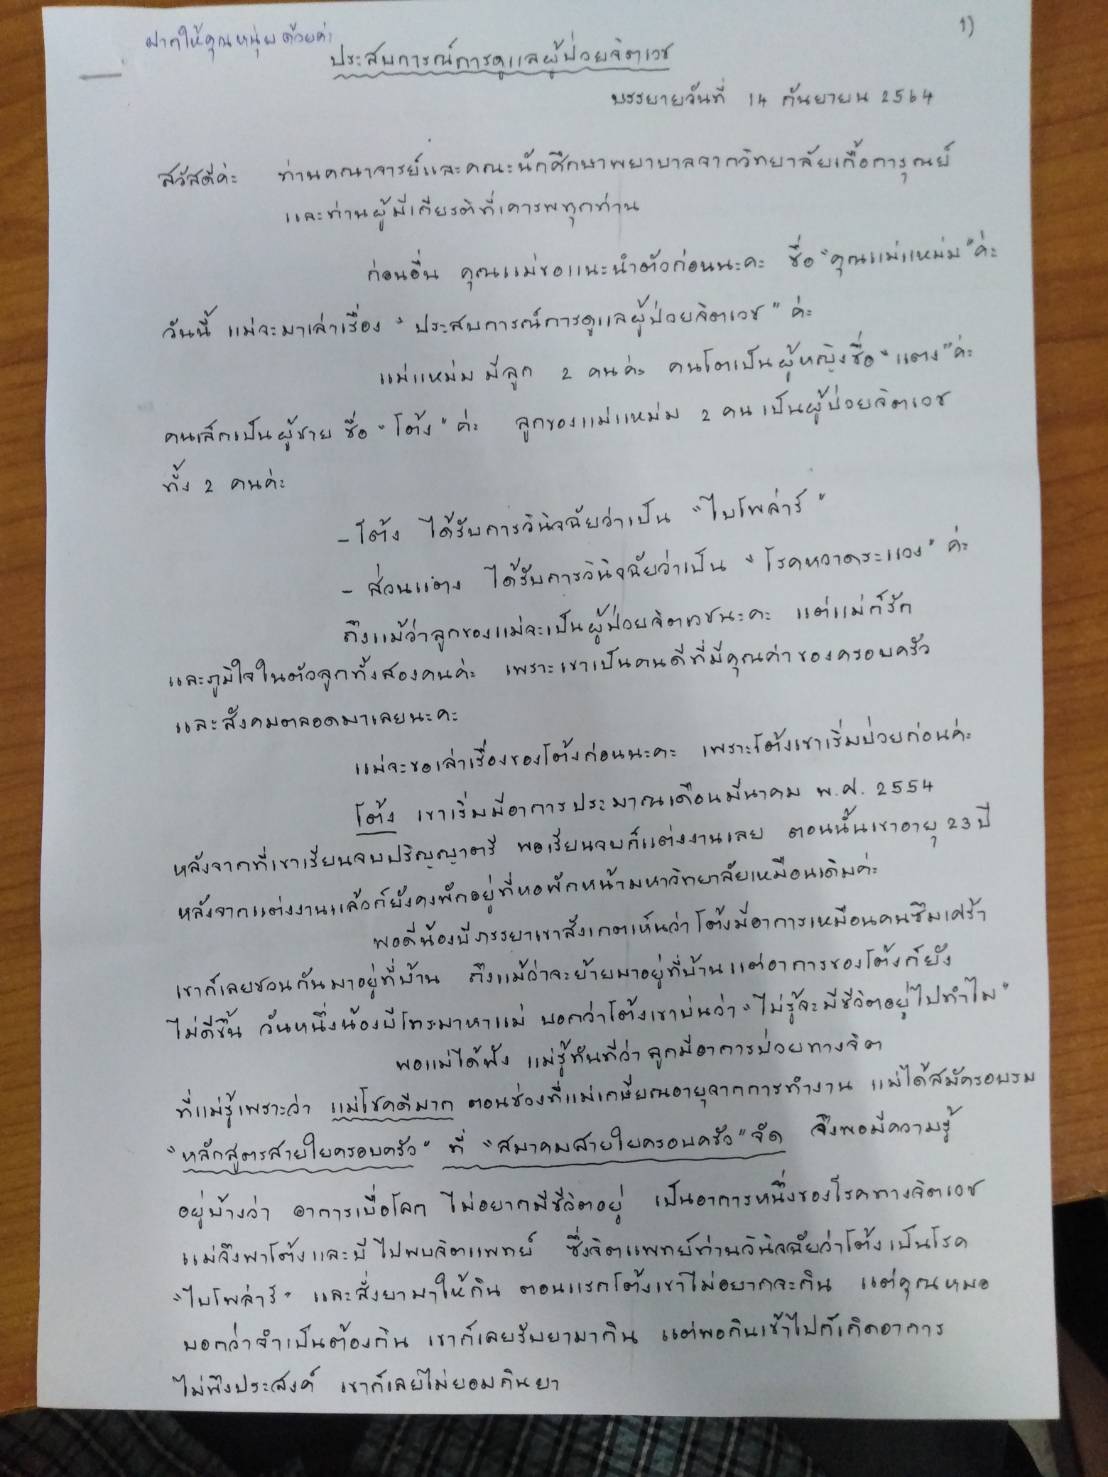 ฝากให้คุณหนุ่ยด้วยค่ะ
1)
ประสบการณ์การดูแลผู้ป่วยจิตเวช
บรรยายวันที่ 14 กันยายน 2564
สวัสดีค่ะ ท่านคณาจารย์และคณะนักศึกษาพยาบาลจากวิทยาลัยเกื้อการุณย์
และท่านผู้มีเกียรติที่เคารพทุกท่าน
ก่อนอื่น คุณแม่ขอแนะนำตัวก่อนนะคะ ชื่อ "คุณแม่แหม่ม" ค่ะ
วันนี้ แม่จะมาเล่าเรื่อง "ประสบการณ์การดูแลผู้ป่วยจิตเวช" ค่ะ
แม่แหม่ม มีลูก 2 คนค่ะ คนโตเป็นผู้หญิงชื่อ "แตง" ค่ะ
คนเล็กเป็นผู้ชาย ชื่อ "โต้ง" ค่ะ ลูกของแม่แหม่ม 2 คน เป็นผู้ป่วยจิตเวช
ทั้ง 2 คนค่ะ
- โต้ง ได้รับการวินิจฉัยว่าเป็น "ไบโพล่าร์"
- ส่วนแตง ได้รับการวินิจฉัยว่าเป็น "โรคหวาดระแวง" ค่ะ
ถึงแม้ว่าลูกของแม่จะเป็นผู้ป่วยจิตเวชนะคะ แต่แม่ก็รัก
และภูมิใจในตัวลูกทั้งสองคนค่ะ เพราะเขาเป็นคนดีที่มีคุณค่าของครอบครัว
และสังคมตลอดมาเลยนะคะ
แม่จะขอเล่าเรื่องของโต้งก่อนนะคะ เพราะโต้งเขาเริ่มป่วยก่อนค่ะ
โต้ง เขาเริ่มมีอาการประมาณเดือนมีนาคม พ.ศ. 2554
หลังจากที่เขาเรียนจบปริญญาตรี พอเรียนจบก็แต่งงานเลย ตอนนั้นเขาอายุ 23 ปี
หลังจากแต่งงานแล้วก็ยังคงพักอยู่ที่หอพักหน้ามหาวิทยาลัยเหมือนเดิมค่ะ
พอดีน้องบีภรรยาเขาสังเกตเห็นว่าโต้งมีอาการเหมือนคนซึมเศร้า
เขาก็เลยชวนกันมาอยู่ที่บ้าน ถึงแม้ว่าจะย้ายมาอยู่ที่บ้านแต่อาการของโต้งก็ยัง
ไม่ดีขึ้น วันหนึ่งน้องบีโทรมาหาแม่ บอกว่าโต้งเขาบ่นว่า "ไม่รู้จะมีชีวิตอยู่ไปทำไม"
พอแม่ได้ฟัง แม่รู้ทันทีว่า ลูกมีอาการป่วยทางจิต
ที่แม่รู้เพราะว่า แม่โชคดีมาก ตอนช่วงที่แม่เกษียณอายุจากการทำงาน แม่ได้สมัครอบรม
"หลักสูตรสายใยครอบครัว" ที่ "สมาคมสายใยครอบครัว" จัด จึงพอมีความรู้
อยู่บ้างว่า อาการเบื่อโลก ไม่อยากมีชีวิตอยู่ เป็นอาการหนึ่งของโรคทางจิตเวช
แม่จึงพาโต้งและบี ไปพบจิตแพทย์ ซึ่งจิตแพทย์ท่านวินิจฉัยว่าโต้งเป็นโรค
"ไบโพล่าร์" และสั่งยามาให้กิน ตอนแรกโต้งเขาไม่อยากจะกิน แต่คุณหมอ
บอกว่าจำเป็นต้องกิน เขาก็เลยรับยามากิน แต่พอกินเข้าไปก็เกิดอาการ
ไม่พึงประสงค์ เขาก็เลยไม่ยอมกินยา